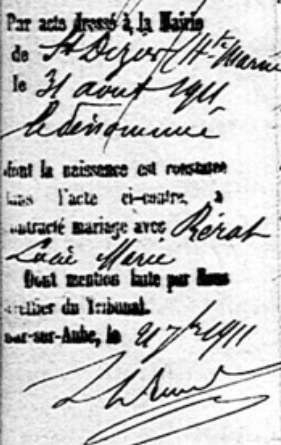 Par acte dressé à la Mairie
de St Dizier (Hte Marne
le 31 aout 1911
le dénommé
dont la naissance est constatée
dans l'acte ci-contre, a
contracté mariage avec Rérat
Lucie Marie
Dont mention faite par Nous
greffier du Tribunal.
Bar-sur-Aube, le 2 7bre 1911